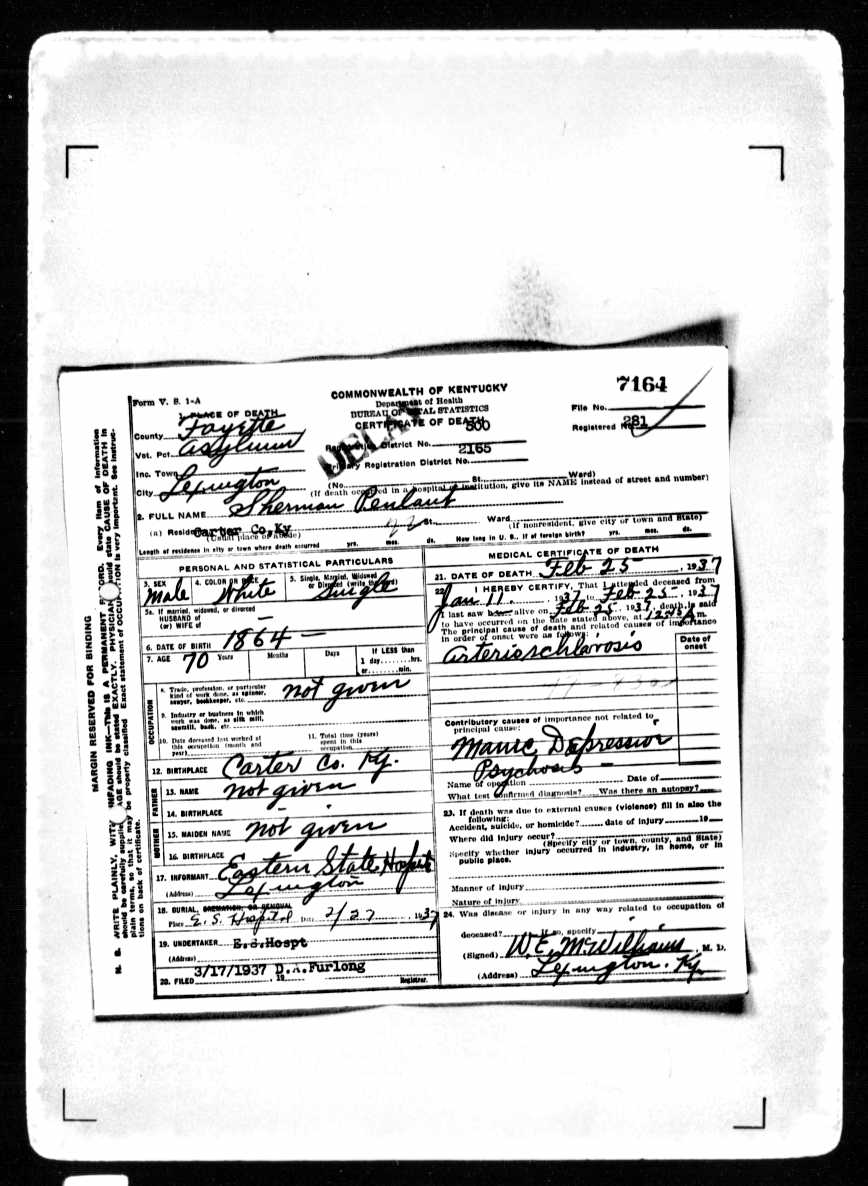 7164
Form V. S. 1-A
COMMONWEALTH OF KENTUCKY
Department of Health
BUREAU OF VITAL STATISTICS
CERTIFICATE OF DEATH
DELAY
File No.
Registered No. 281
1. PLACE OF DEATH
County Fayette
Vot. Pct. Asylum
Inc. Town
City Lexington
Registration District No. 500
Primary Registration District No. 2165
(No. St. Ward)
(If death occurred in a hospital or institution, give its NAME instead of street and number)
2. FULL NAME Sherman Penlant
(a) Residence Carter Co.Ky St. Ward
(Usual place of abode) (If nonresident, give city or town and State)
Length of residence in city or town where death occurred yrs. mos. ds. How long in U. S., if of foreign birth? yrs. mos. ds.
PERSONAL AND STATISTICAL PARTICULARS
3. SEX Male
4. COLOR OR RACE White
5. Single, Married, Widowed or Divorced (write the word) Single
5a. If married, widowed, or divorced
HUSBAND of
(or) WIFE of —
6. DATE OF BIRTH 1864 —
7. AGE 70 Years Months Days
If LESS than
1 day........hrs.
or........min.
OCCUPATION
8. Trade, profession, or particular
kind of work done, as spinner,
sawyer, bookkeeper, etc. not given
9. Industry or business in which
work was done, as silk mill,
sawmill, bank, etc.
10. Date deceased last worked at
this occupation (month and
year)
11. Total time (years)
spent in this
occupation
12. BIRTHPLACE Carter Co. Ky.
FATHER
13. NAME not given
14. BIRTHPLACE
MOTHER
15. MAIDEN NAME not given
16. BIRTHPLACE
17. INFORMANT Eastern State Hospt
(Address) Lexington
18. BURIAL, CREMATION, OR REMOVAL
Place E. S. Hospital Date 2/27, 1937
19. UNDERTAKER E.S.Hospt
(Address)
20. FILED 3/17/1937 D.A.Furlong
19 Registrar.
MEDICAL CERTIFICATE OF DEATH
21. DATE OF DEATH Feb 25, 1937
22. I HEREBY CERTIFY, That I attended deceased from
Jan 11, 1937 to Feb 25, 1937
I last saw h alive on Feb 25, 1937, death is said
to have occurred on the date stated above, at m.
The principal cause of death and related causes of importance
in order of onset were as follows:
Date of
onset
Arterioschlarosis
Contributory causes of importance not related to
principal cause:
Manic Depression
Psychosis —
Name of operation Date of
What test confirmed diagnosis? Was there an autopsy?
23. If death was due to external causes (violence) fill in also the
following:
Accident, suicide, or homicide? date of injury 19
Where did injury occur?
(Specify city or town, county, and State)
Specify whether injury occurred in industry, in home, or in
public place.
Manner of injury
Nature of injury
24. Was disease or injury in any way related to occupation of
deceased? If so, specify
(Signed) W.E. McWilliams M. D.
(Address) Lexington. Ky.
MARGIN RESERVED FOR BINDING
N. B. WRITE PLAINLY, WITH UNFADING INK—THIS IS A PERMANENT RECORD. Every item of information
should be carefully supplied. AGE should be stated EXACTLY. PHYSICIANS should state CAUSE OF DEATH in
plain terms, so that it may be properly classified. Exact statement of OCCUPATION is very important. See instruc-
tions on back of certificate.